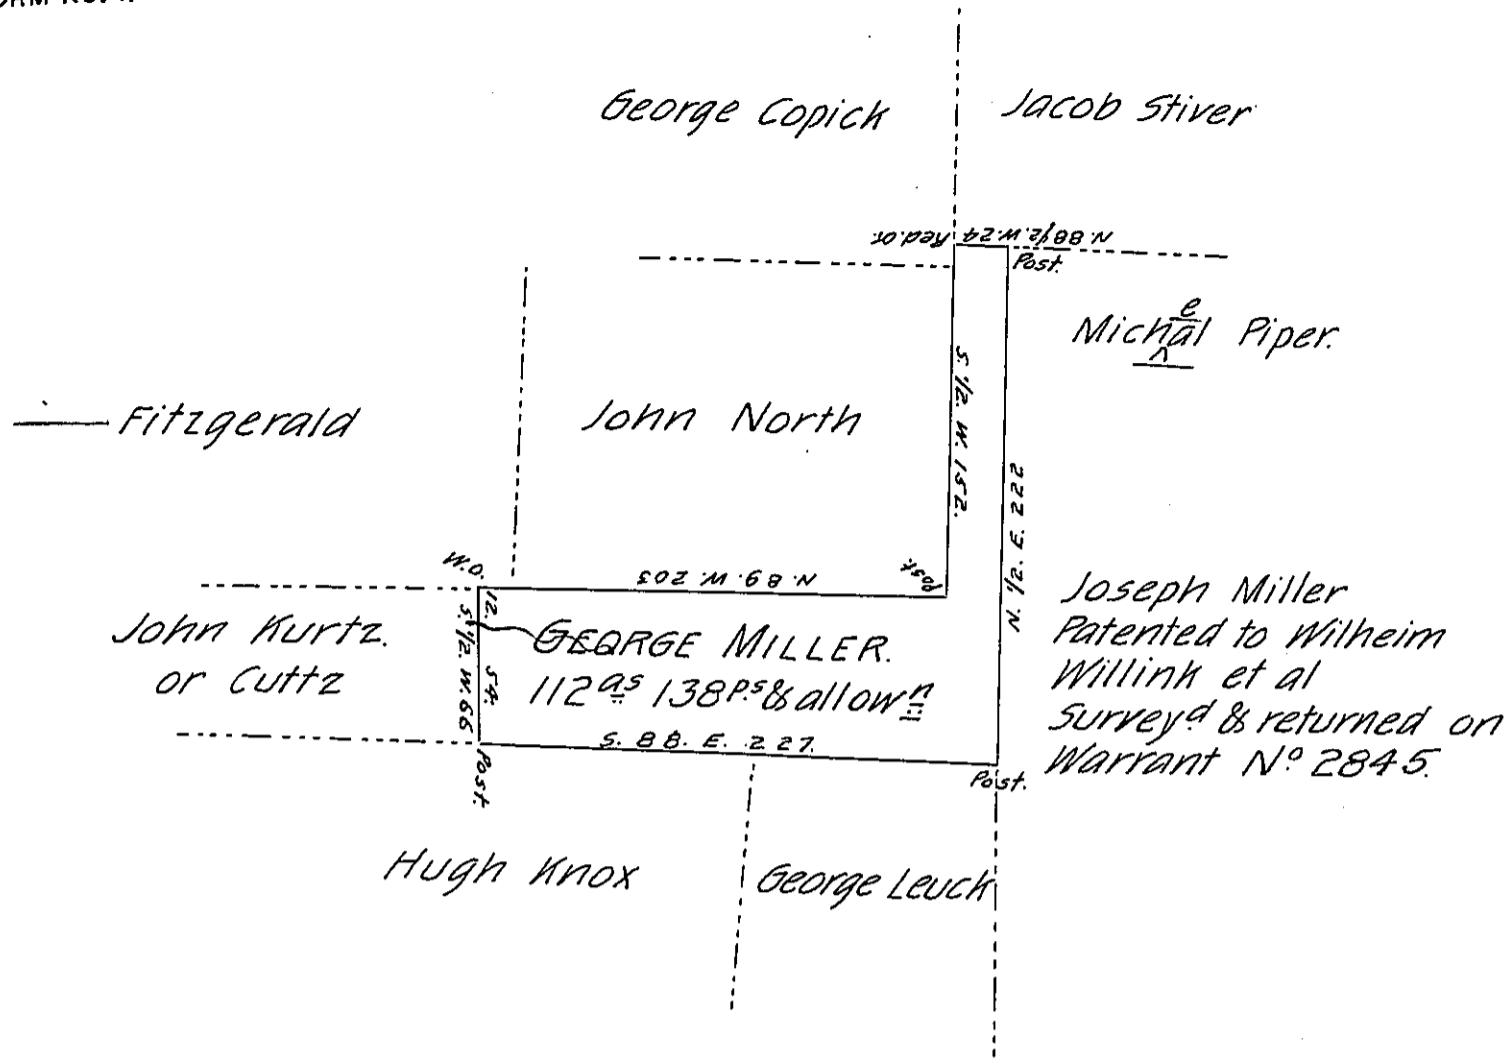 George Copick
Jacob Stiver
N. 88 1/2. W. 24
Red. o.
Post.
Michael Piper.
Fitzgerald
John North
S. 1/2. W. 152.
N. 1/2. E. 222
W.O.
N. 89. W. 203
Post.
12.
S. 1/2. W. 66
54.
John Kurtz.
or Cuttz
GEORGE MILLER.
112 as 138 p.s & allow n
S. 88. E. 227.
Post.
Post.
Joseph Miller
Patented to Wilheim
Willink et al
Survey d & returned on
Warrant No 2845.
Hugh Knox
George Leuck